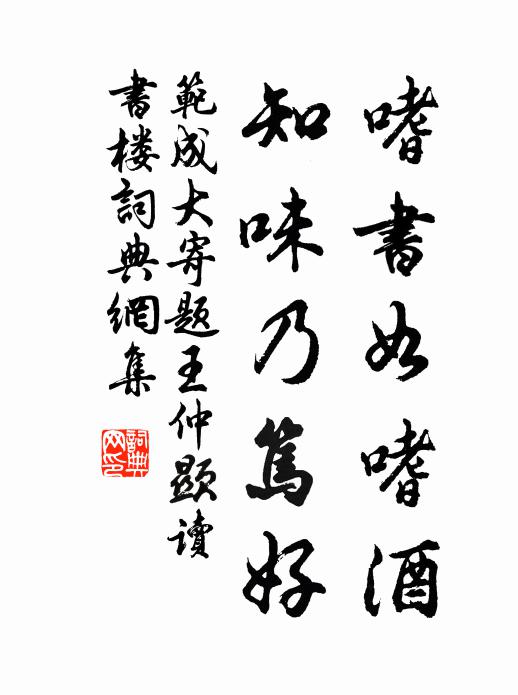 嗜書如嗜酒
知味乃篤好
範成大寄題王仲顯讀
書楼詞典網集
詞典网印